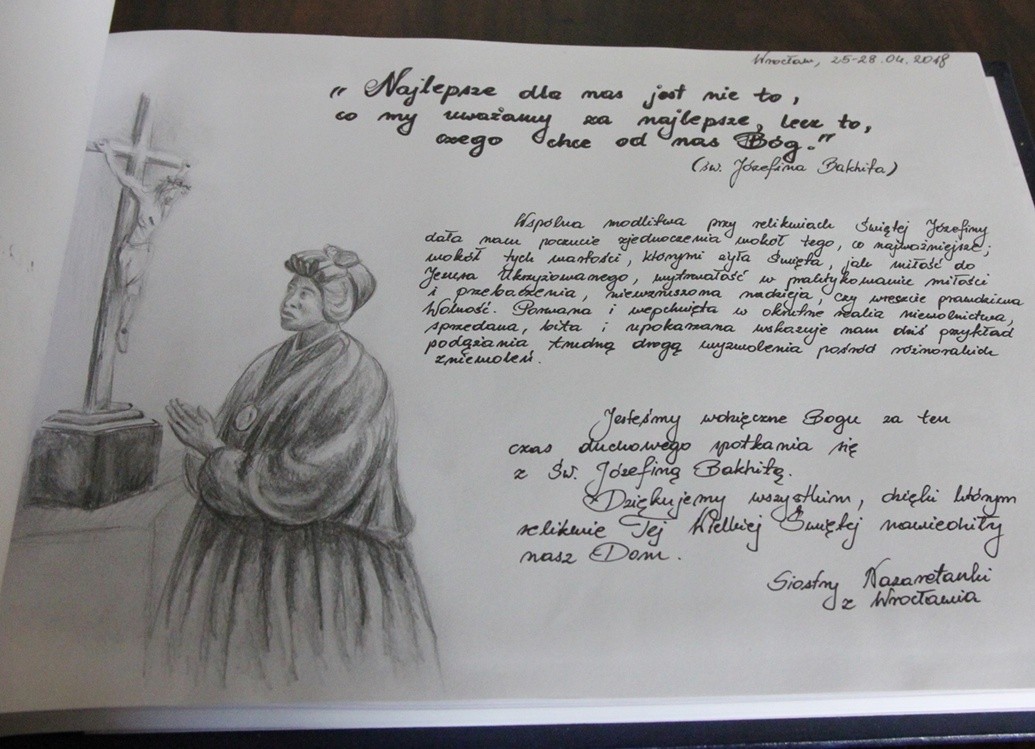 Wrocław, 25-28.04.2018
„Najlepsze dla nas jest nie to,
co my uważamy za najlepsze, lecz to,
czego chce od nas Bóg."
(św. Józefina Bakhita)
Wspólna modlitwa przy relikwiach Świętej Józefiny
dała nam poczucie zjednoczenia wokół tego, co najważniejsze;
wokół tych wartości, którymi żyła Święta, jak miłość do
Jezusa Ukrzyżowanego, wytrwałość w praktykowaniu miłości
i przebaczenia, niewzruszona nadzieja, czy wreszcie prawdziwa
Wolność. Porwana i wepchnięta w okrutne realia niewolnictwa,
sprzedana, bita i upokarzana wskazuje nam dziś przykład
podążania trudną drogą wyzwolenia pośród różnorakich
zniewoleń.
Jesteśmy wdzięczne Bogu za ten
czas duchowego spotkania się
z Św. Józefiną Bakhitą.
Dziękujemy wszystkim, dzięki którym
relikwie Tej Wielkiej Świętej nawiedziły
nasz Dom.
Siostry Nazaretanki
z Wrocławia